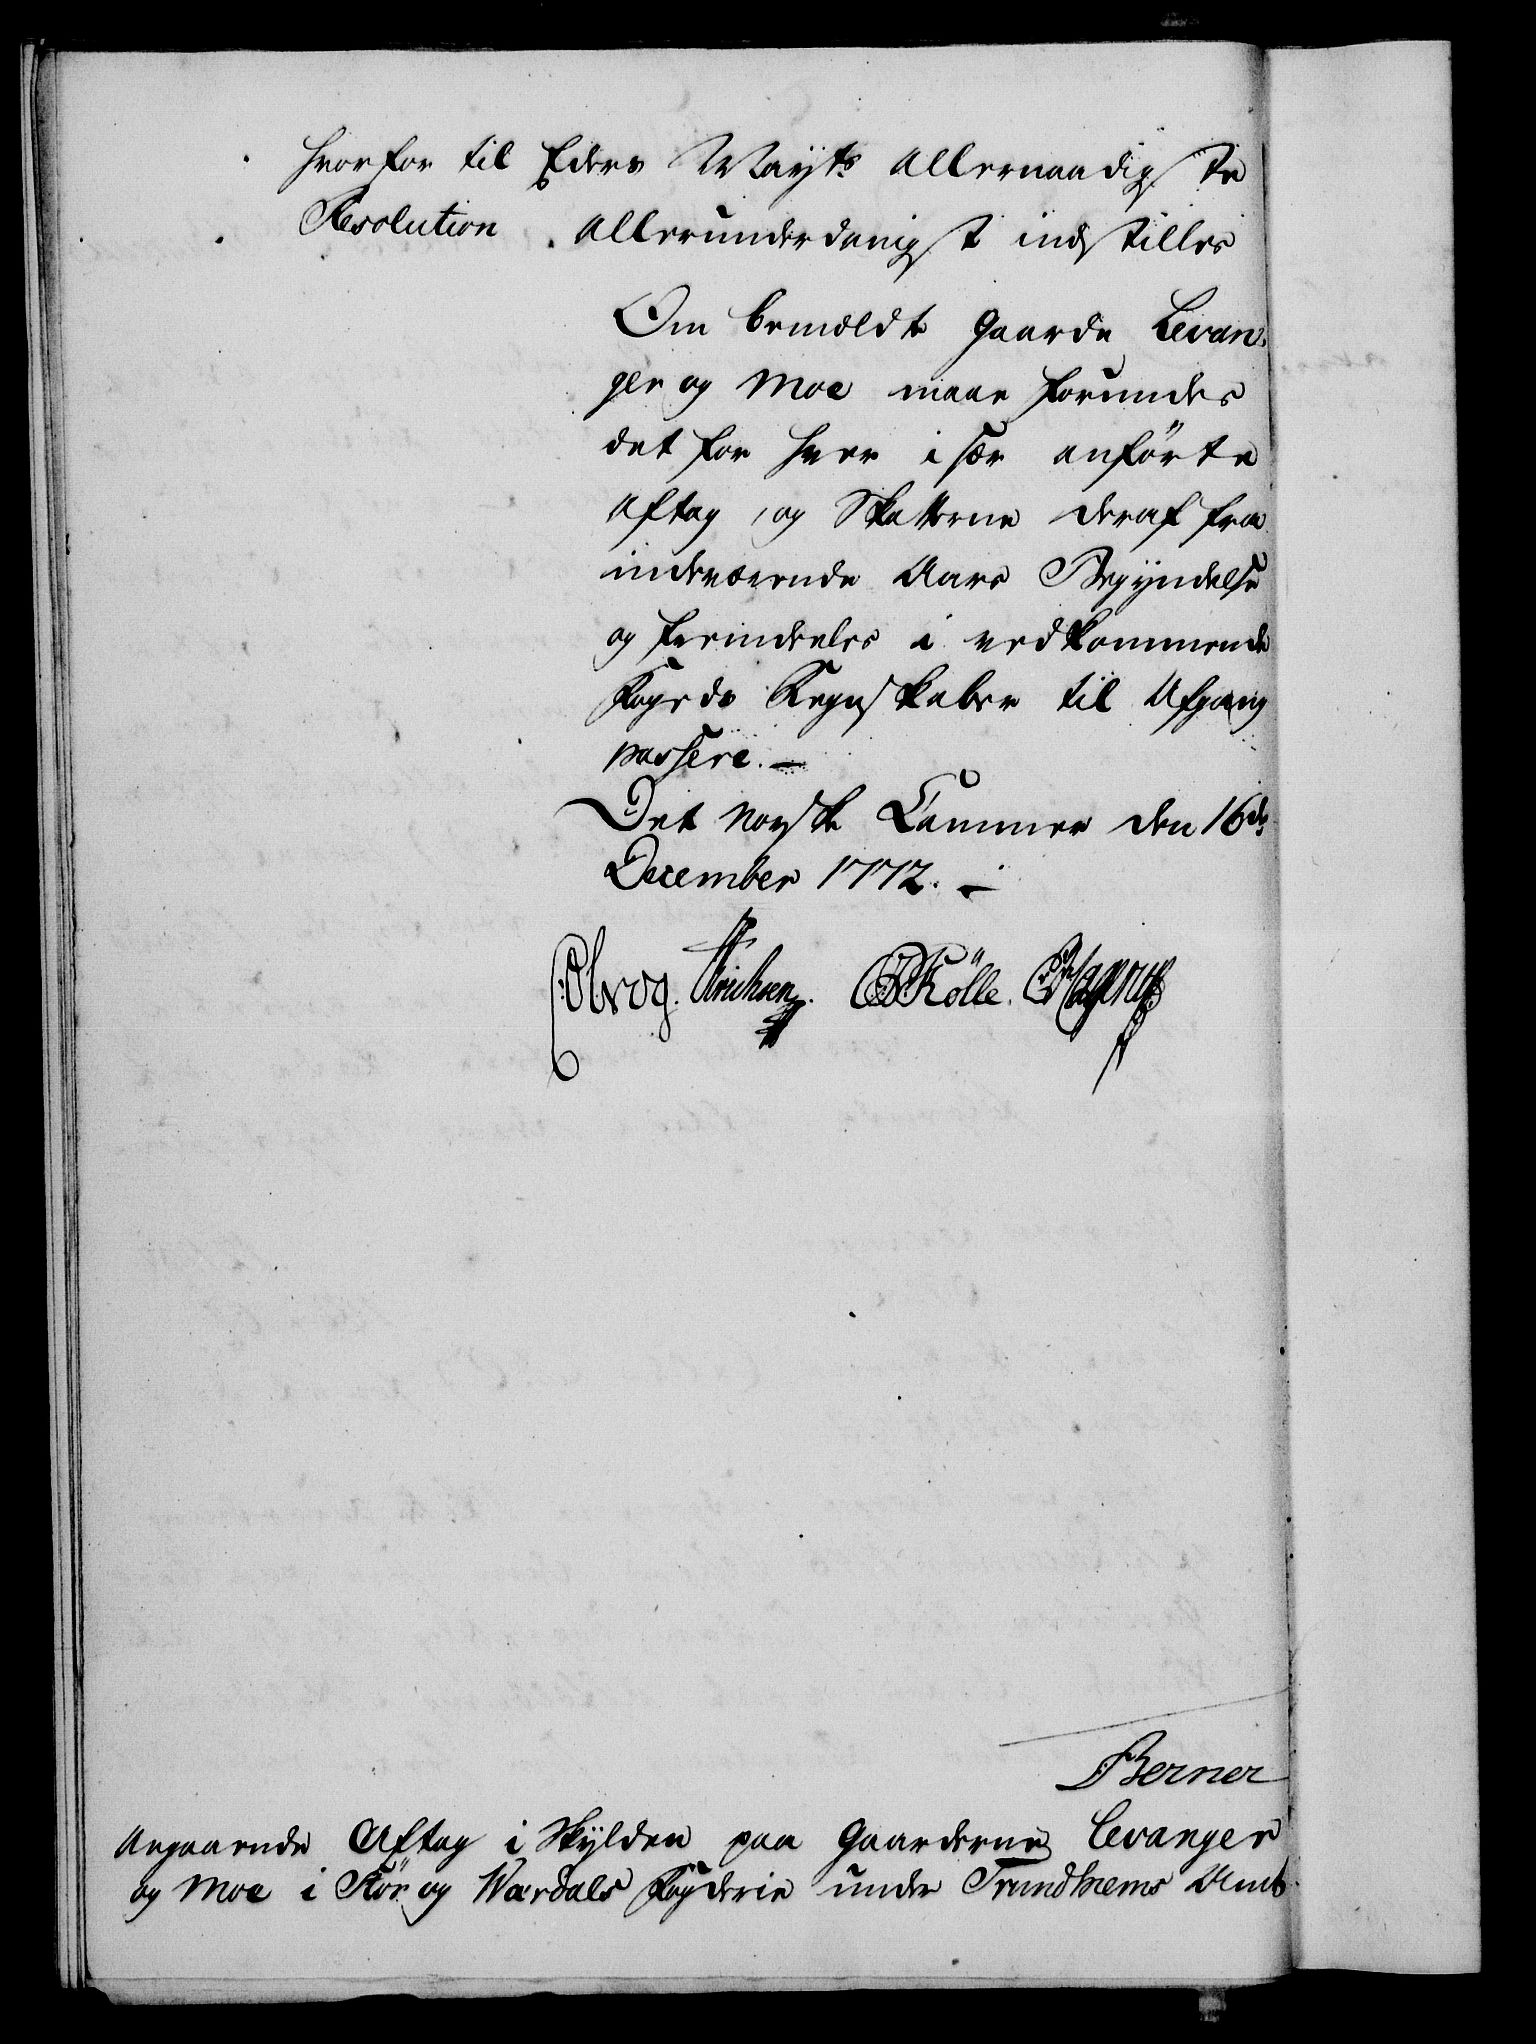 hvorfor til Eders Mayts Allernaadigste
Resolution allerunderdanigst indstilles
Om bemeldte Gaarde Levan-
ger og Moe maae forundes
det for hver i sær anførte
Aftag, og Skatterne deraf fra
indeværende Aars Begyndelse
og fremdeeles i vedkommende
Fogeds Regnskaber til Afgang
passere. —
Det norske Cammer den 16de
December 1772. —
Obrog. Erichsen. Kølle. Hagerup
Berner
Angaaende Aftag i Skylden paa Gaarderne Levanger
og Moe i Stør og Værdals Fogderie under Trundhiems Amt.